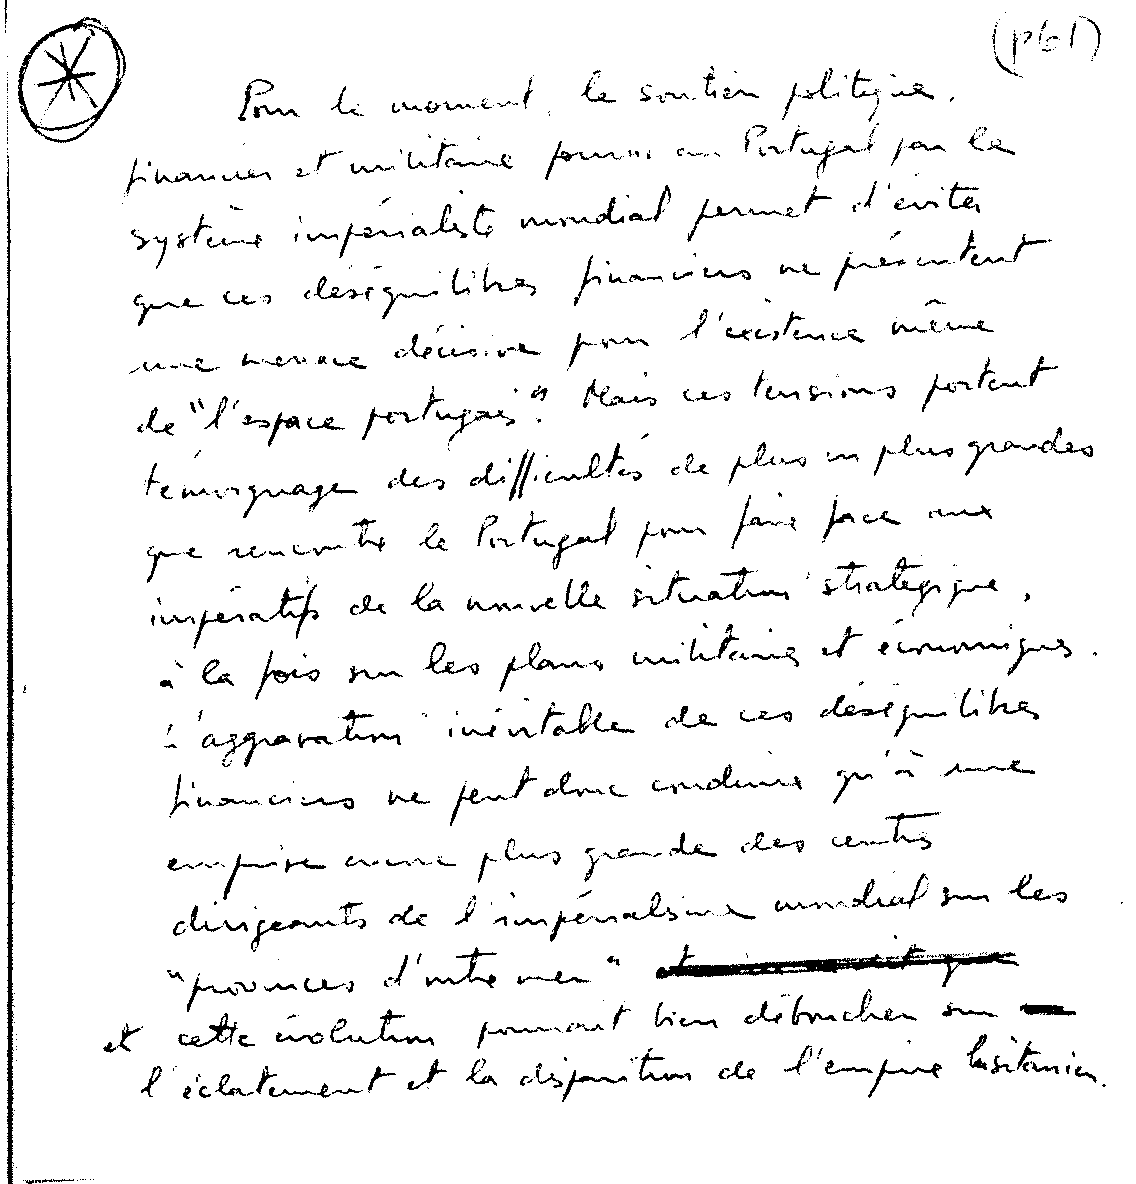 (p61)
Pour le moment, le soutien politique,
financier et militaire fourni au Portugal par le
système impérialiste mondial permet d'éviter
que ces déséquilibres financiers ne présentent
une menace décisive pour l'existence même
de "l'espace portugais". Mais ces tensions portent
témoignage des difficultés de plus en plus grandes
que rencontre le Portugal pour faire face aux
impératifs de la nouvelle situation stratégique,
à la fois sur les plans militaires et économiques.
L'aggravation inévitable de ces déséquilibres
financiers ne peut donc conduire qu'à une
emprise encore plus grande des centres
dirigeants de l'impérialisme mondial sur les
"provinces d'outre mer"
et cette évolution pourrait bien déboucher sur
l'éclatement et la disparition de l'empire lusitanien.